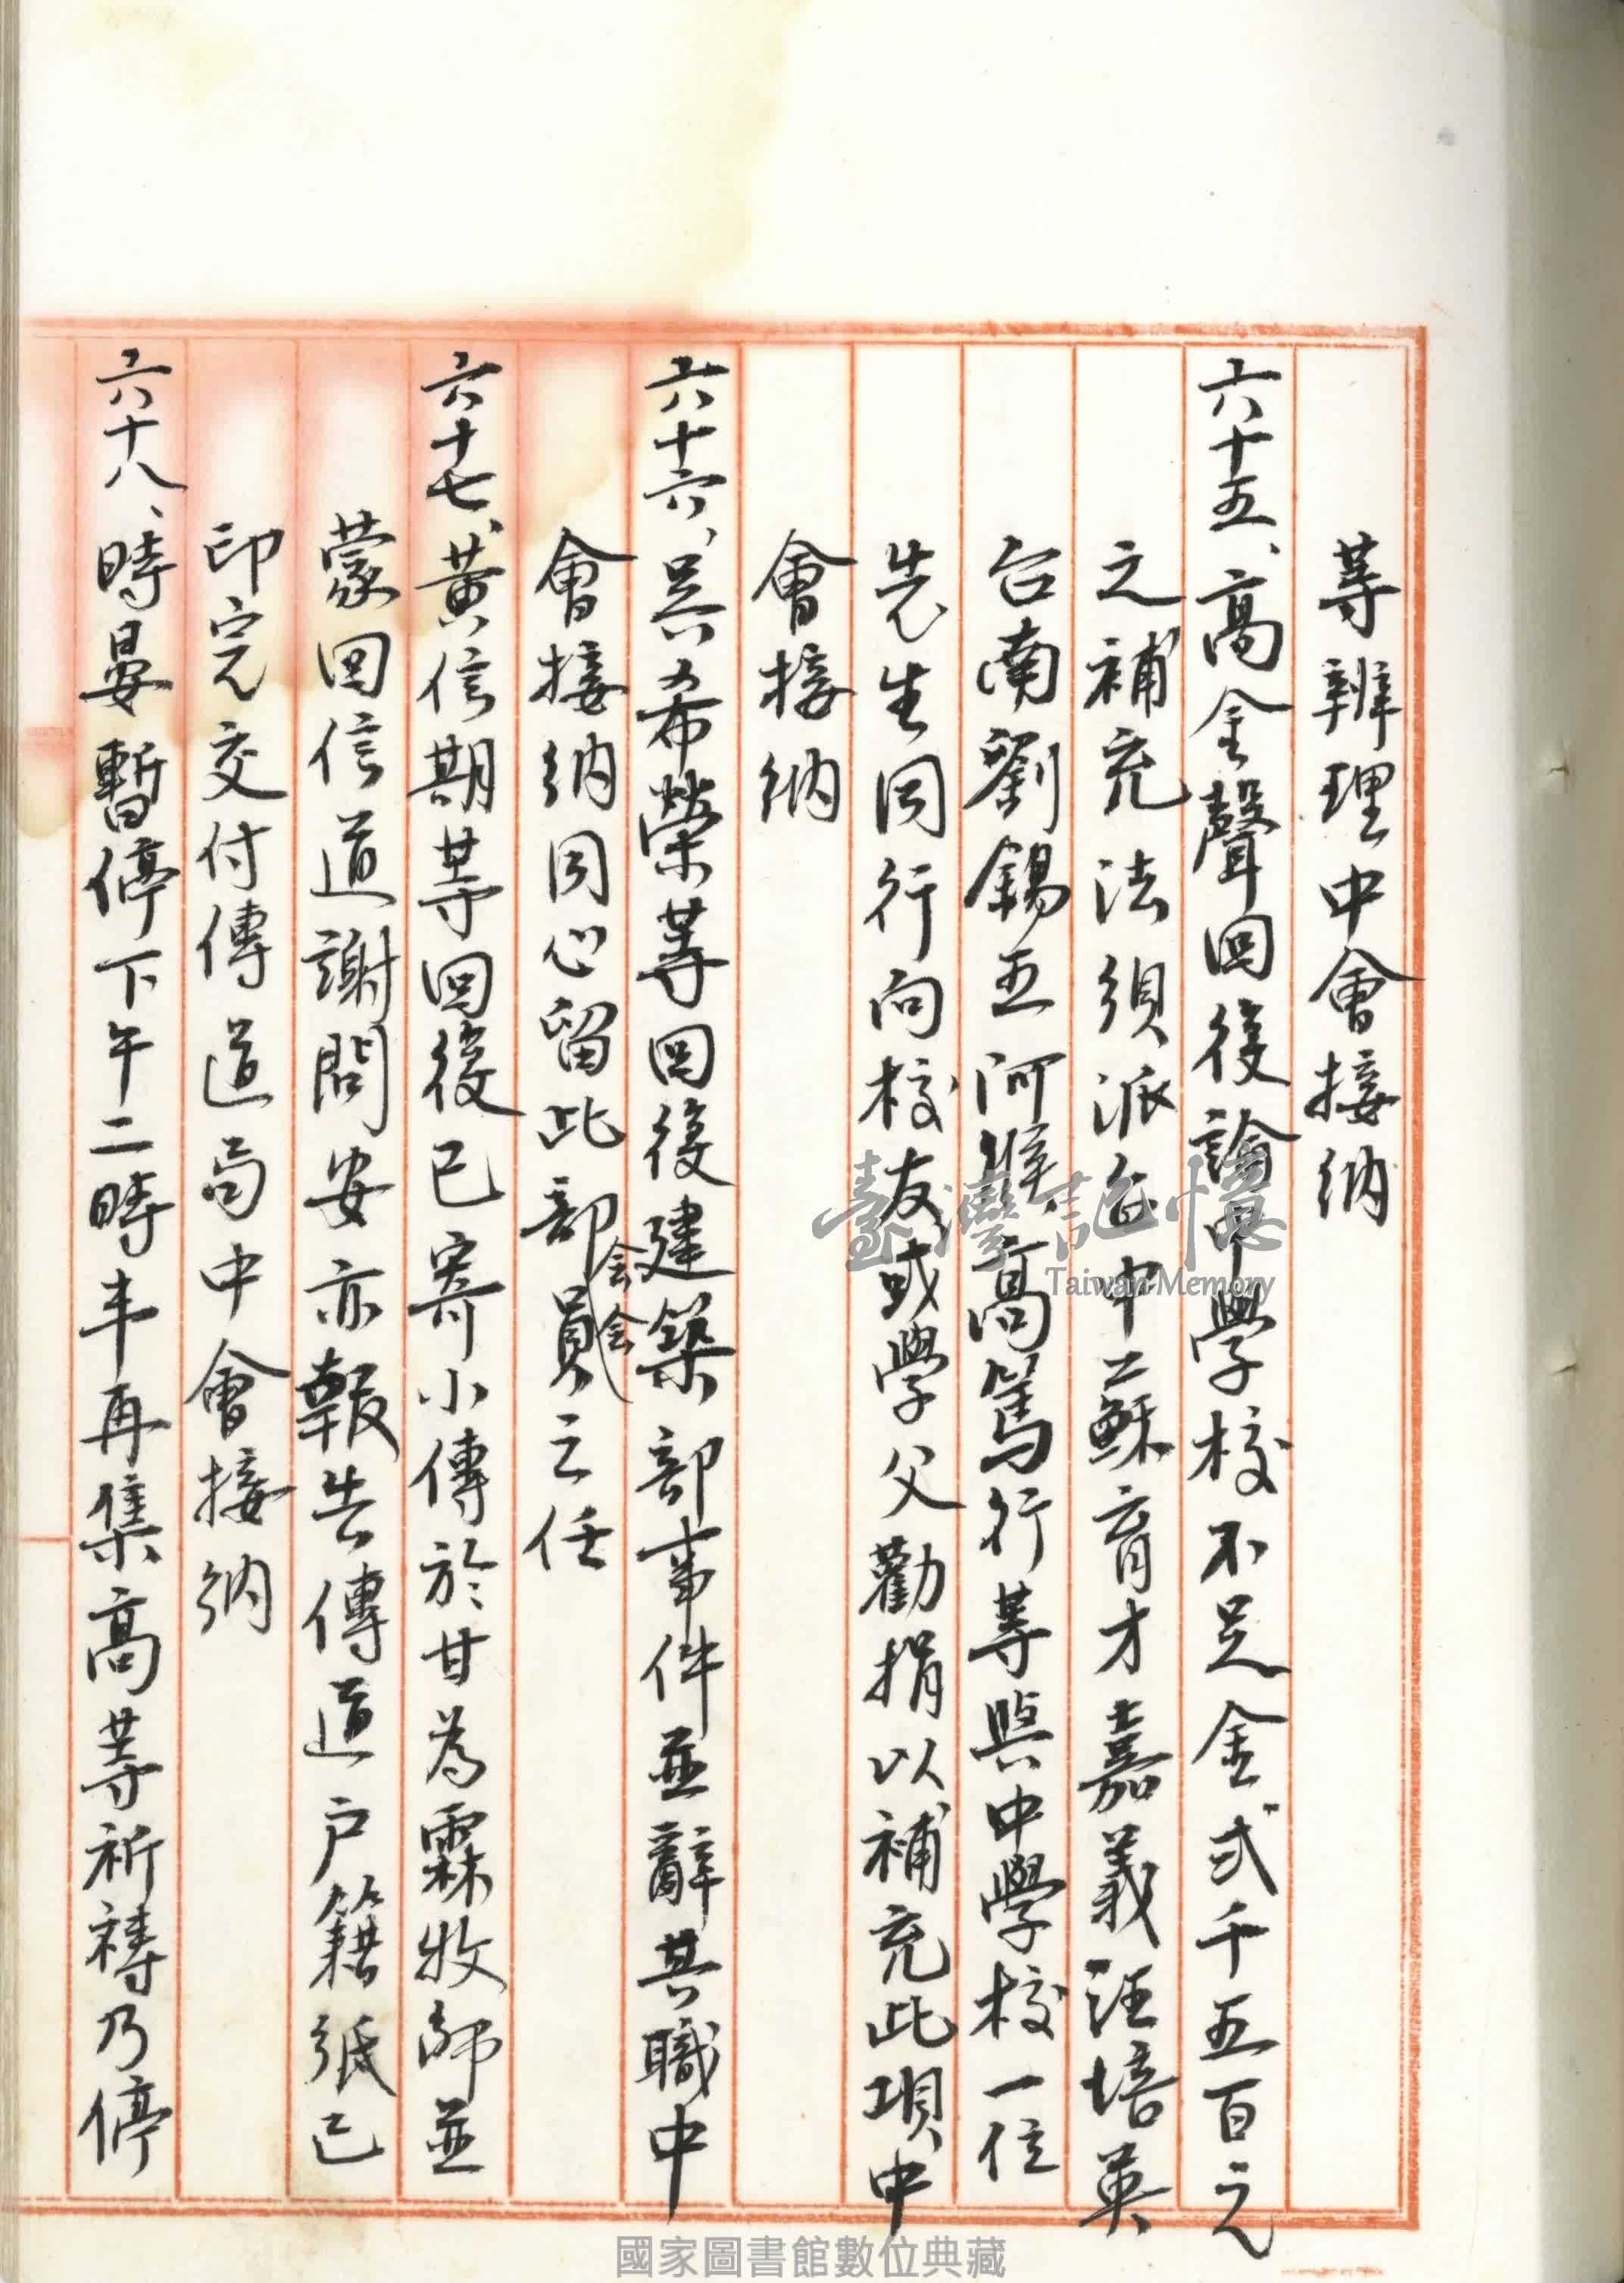 等辦理中會接納
六十五、高金聲回後論中學校不足金弍千五百元
之補充法須派台中蘇育才嘉義汪培英
台南劉錫五阿猴高篤行等與中學校一位
先生同行向校友或學父勸捐以補充此項中
會接納
六十六、吳希榮等回後建築部事件並辭其職中
會接納同心留此部会員会之任
六十七、黃信期等回後已寄小傳於甘為霖牧師並
蒙回信道謝問安亦報告傳道戶籍紙已
印完交付傳道局中會接納
六十八、時晏暫停下午二時半再集高等祈禱乃停
臺灣記憶
Taiwan Memory
國家圖書館數位典藏